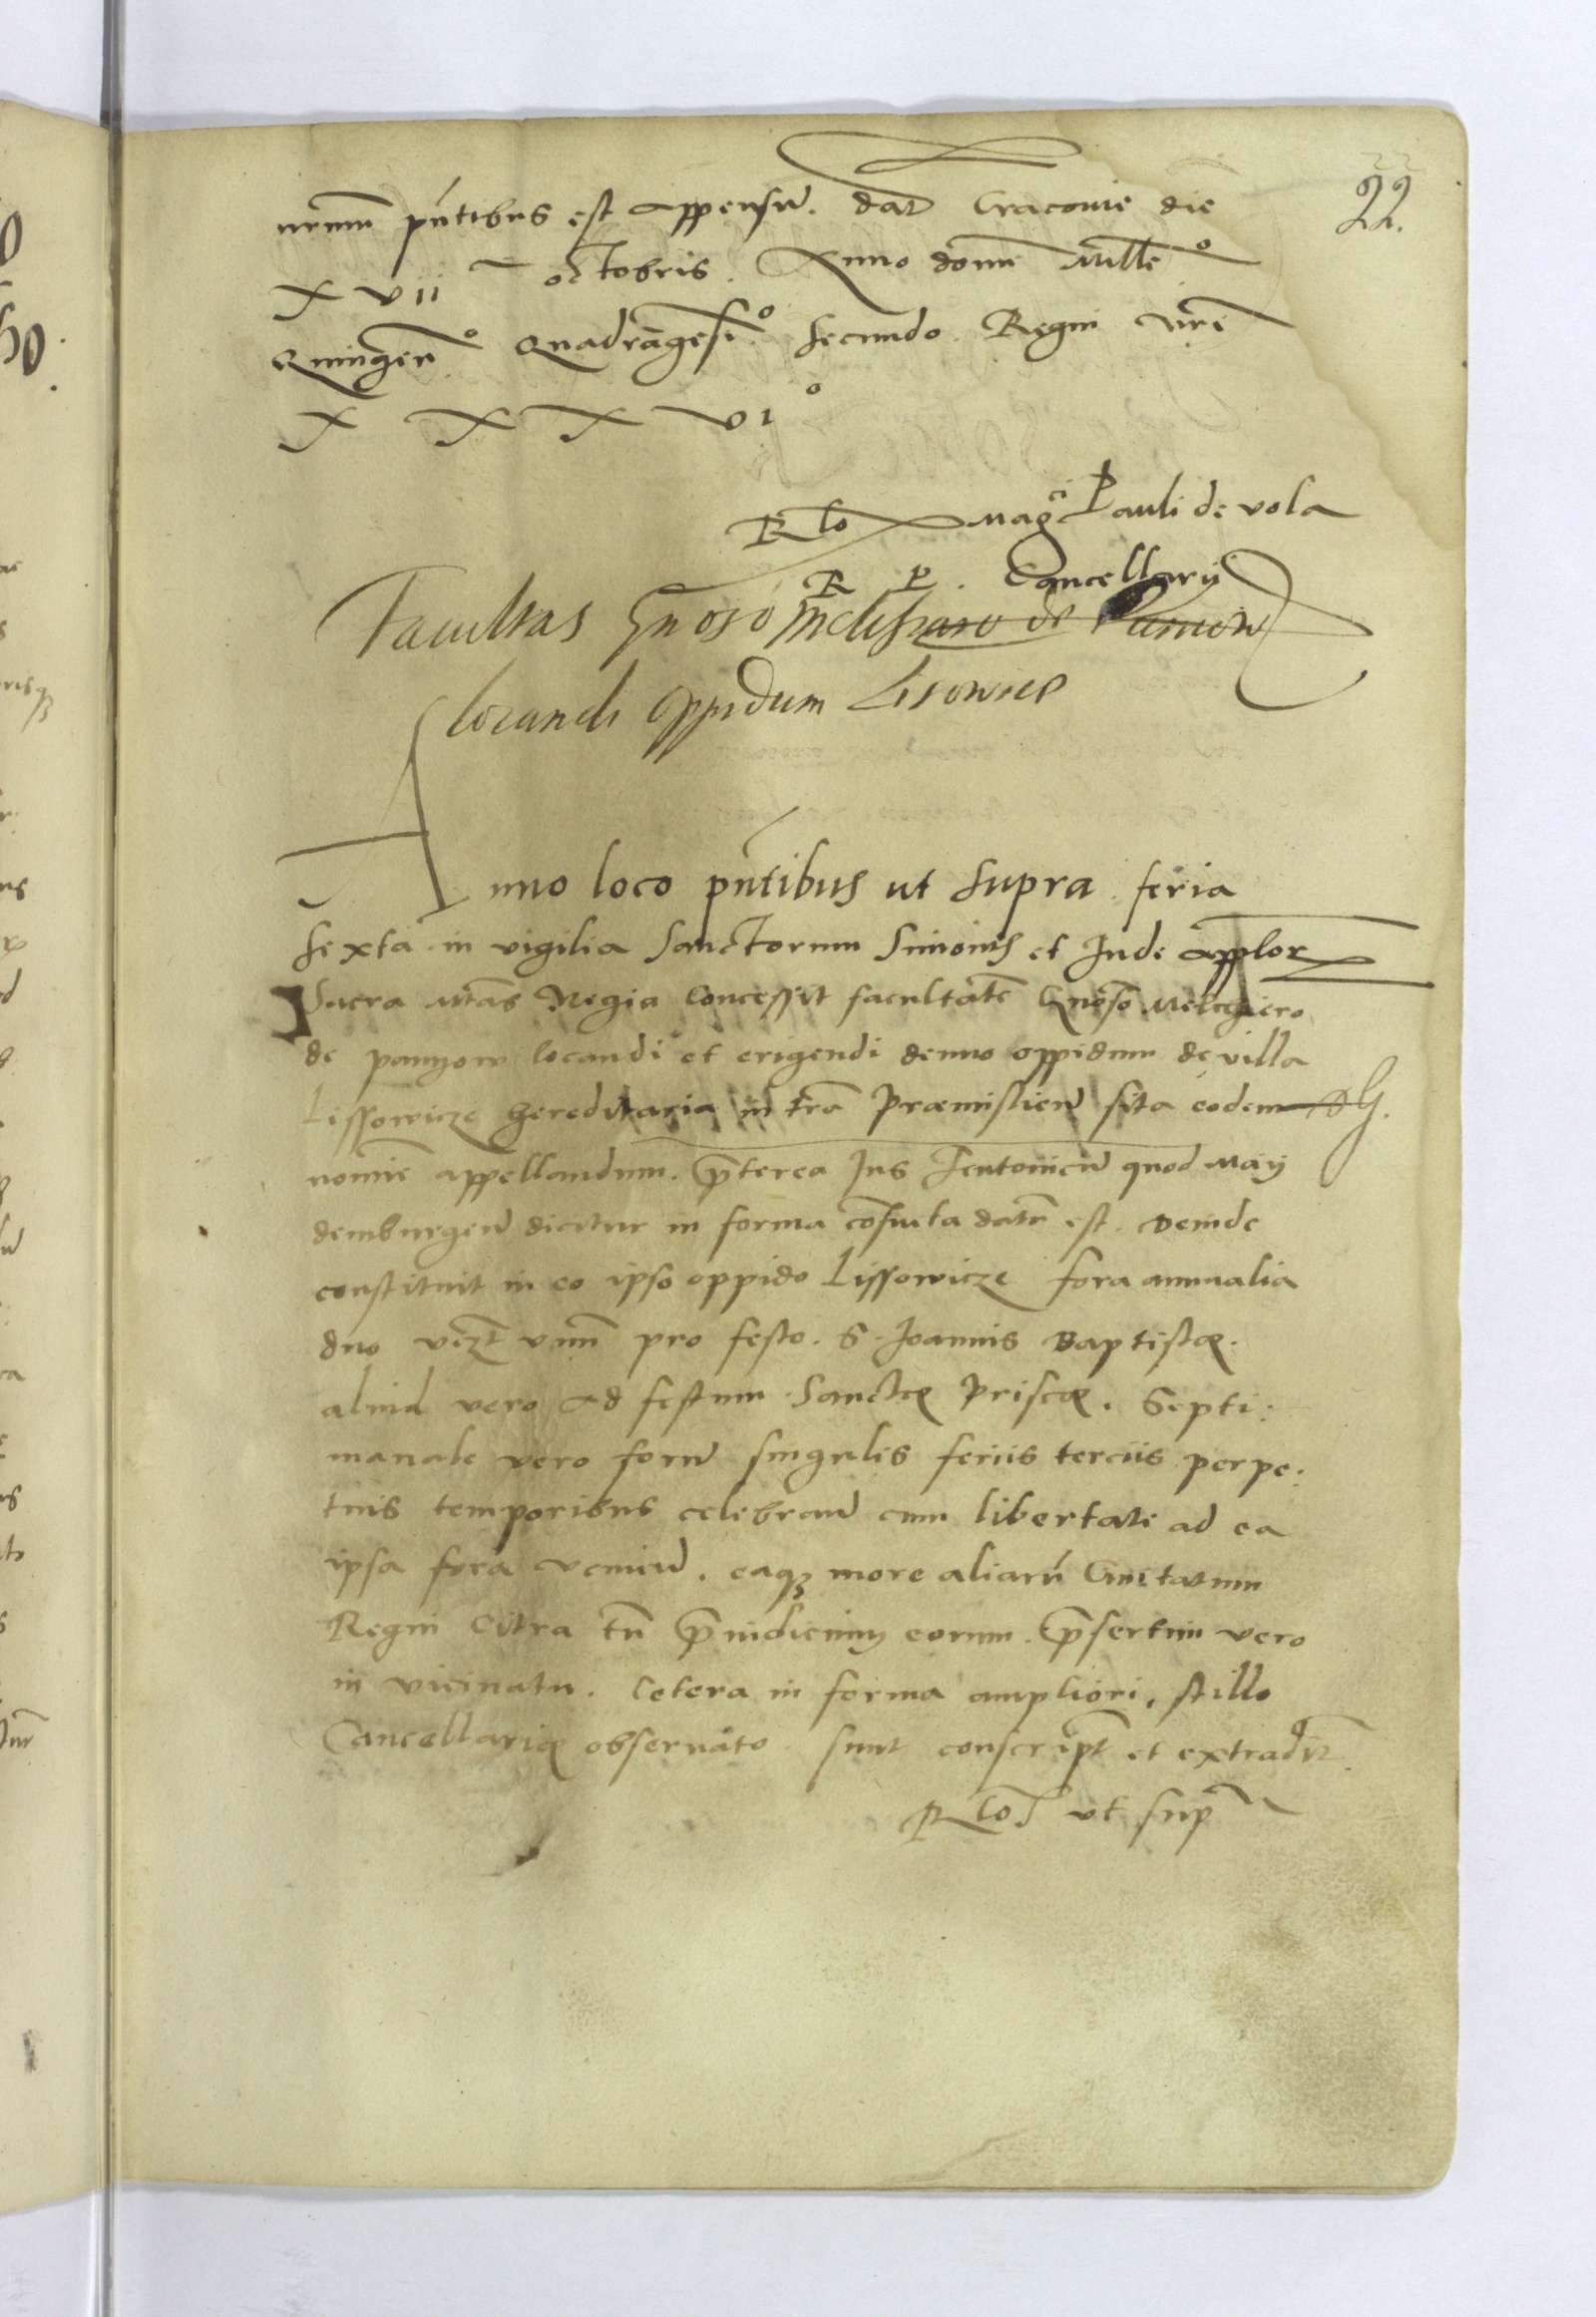 22.
nrum pntibus est appensu. dat Cracovie die
XVII octobris. Anno domi Mille°
Quingen° Quadragesi° secundo. Regni nri
XXXVI°
Rlo Mag^ci Pauli de vola
R P. Cancellarij
Facultas Gnoso Melchiaro de Pamow
locandi oppidum Lisowice
Anno loco pntibus ut supra. feria
sexta in vigilia Sanctorum Simonis et Jude applor
Sacra Mtas Regia Concessit facultate Gnoso Melchiero
de pamyow locandi et erigendi denuo oppidum de villa
Lissowicze hereditaria in tra Præmislien sita eodem
nomie appellandum. Preterea Jus Teutonicu quod May
demburgen dicitur in forma cosueta datu est. Deinde
constituit in eo ipso oppido Lissowicze fora annualia
duo vezt unu pro festo. S. Joannis Baptistæ.
aliud vero ad festum Sanctæ Priscæ. Septi:
manale vero foru singulis feriis terciis perpe:
tuis temporibus celebran cum libertate ad ea
ipsa fora veniend. eaqz more aliaru Civitatum
Regni Citra tn preiudicium eorum. presertim vero
in vicinatu. Cetera in forma ampliori, stillo
Cancellariæ observato sunt conscript et extradit.
Rlo ut sup